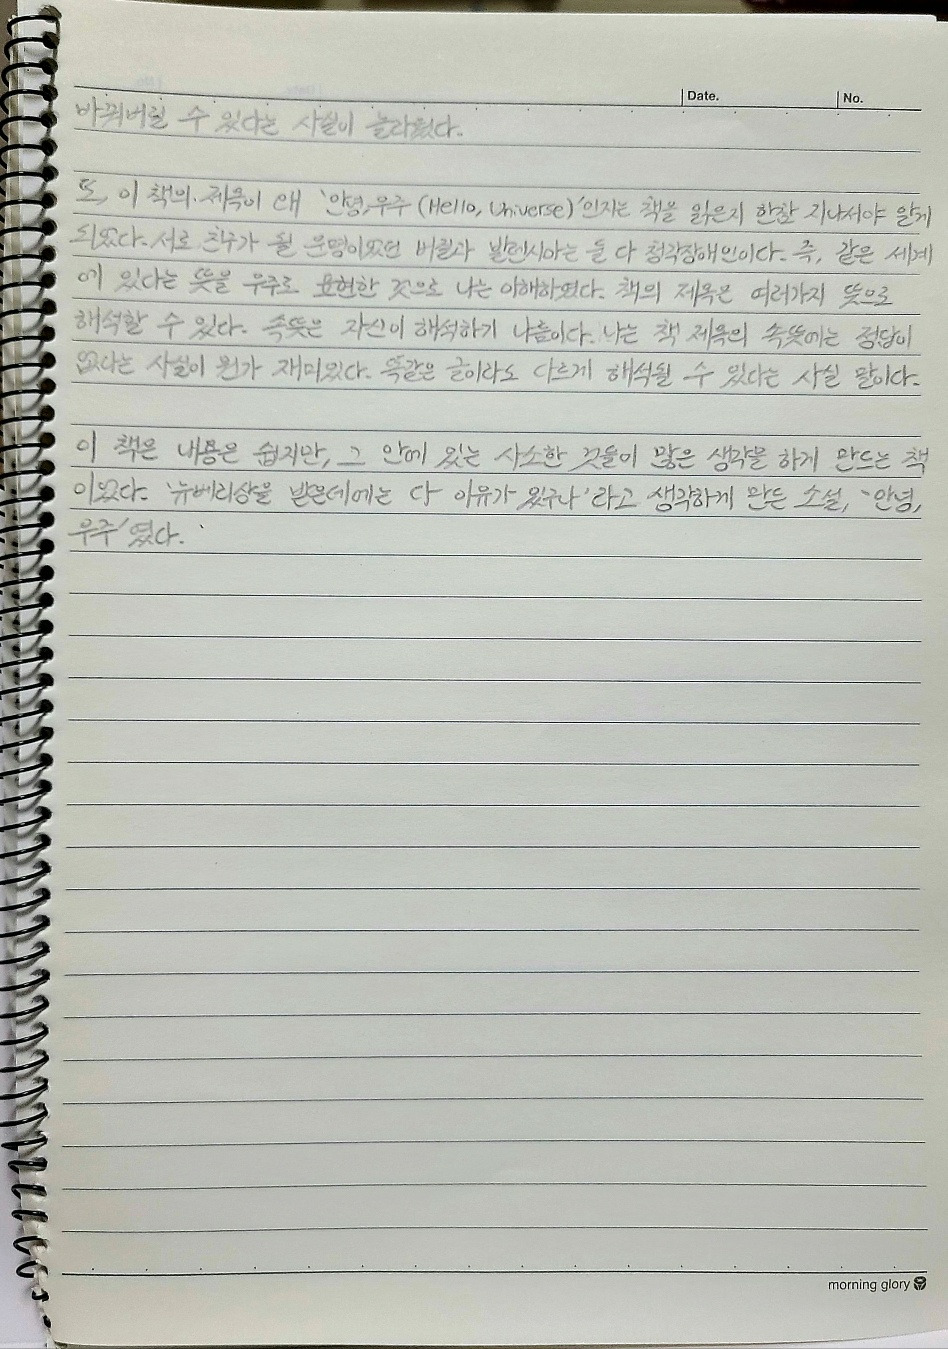 Date. No.
바뀌버릴 수 있다는 사실이 놀라웠다.
또, 이 책의 제목이 왜 '안녕, 우주 (Hello, Universe)'인지는 책을 읽은지 한참 지나서야 알게
되었다. 서로 친구가 될 운명이었던 버질과 발렌시아는 둘 다 청각장애인이다. 즉, 같은 세계
에 있다는 뜻을 우주로 표현한 것으로 나는 이해하였다. 책의 제목은 여러가지 뜻으로
해석할 수 있다. 속뜻은 자신이 해석하기 나름이다. 나는 책 제목의 속뜻에는 정답이
없다는 사실이 뭔가 재미있다. 똑같은 글이라도 다르게 해석될 수 있다는 사실 말이다.
이 책은 내용은 쉽지만, 그 안에 있는 사소한 것들이 많은 생각을 하게 만드는 책
이었다. '뉴베리상을 받은데에는 다 이유가 있구나'라고 생각하게 만든 소설, '안녕,
우주'였다.
morning glory